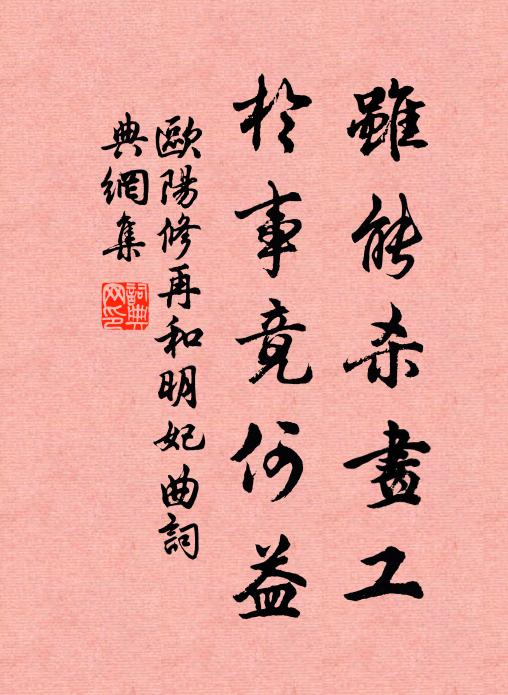 雖能杀畫工
於事竟何益
歐陽修再和明妃曲詞
典網集
詞典
网印